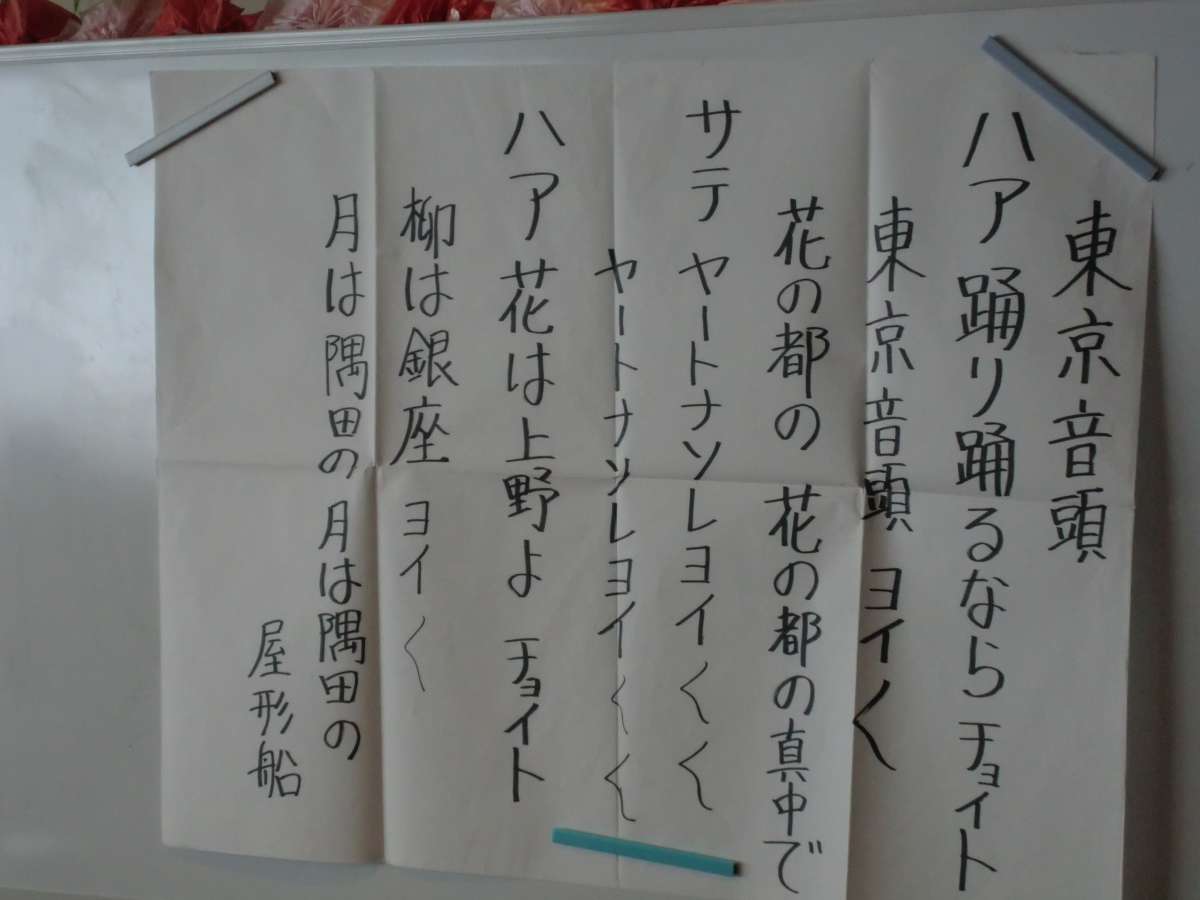 東京音頭
ハア 踊り踊るなら チョイト
東京音頭 ヨイ〱
花の都の 花の都の真中で
サテ ヤートナソレヨイ〱〱
ヤートナソレヨイ〱〱
ハア 花は上野よ チョイト
柳は銀座 ヨイ〱
月は隅田の 月は隅田の
屋形船